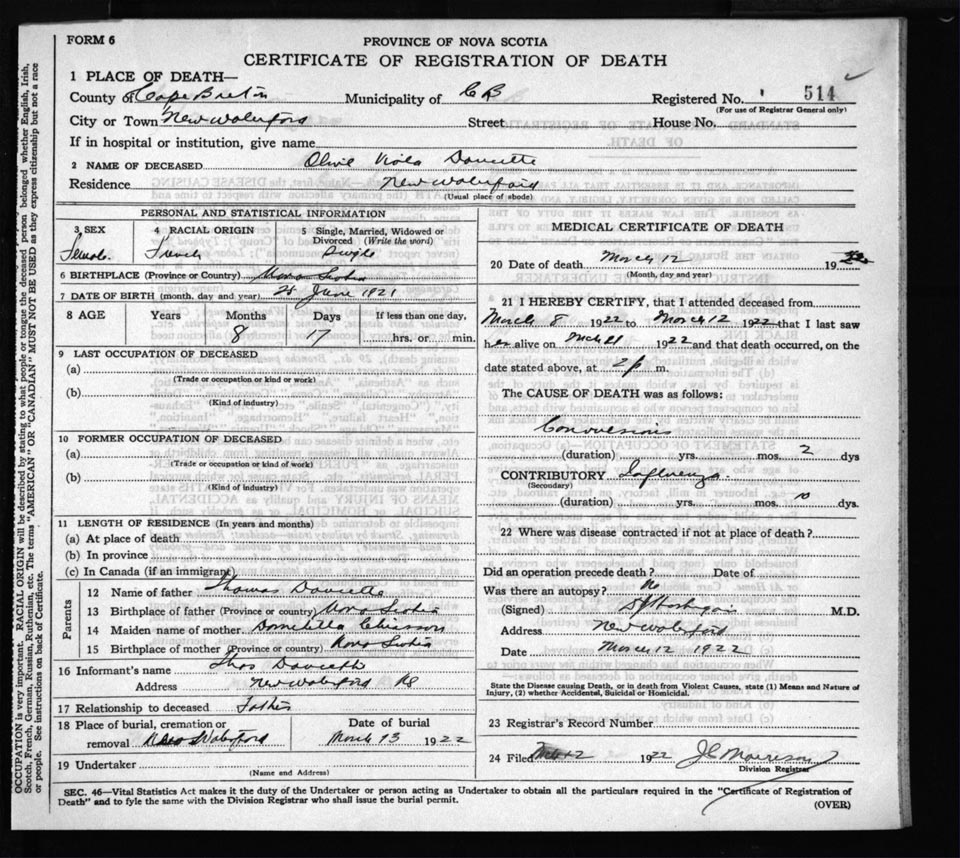 FORM 6
PROVINCE OF NOVA SCOTIA
CERTIFICATE OF REGISTRATION OF DEATH
1 PLACE OF DEATH—
County of Cape Breton Municipality of CB Registered No. 514
(For use of Registrar General only)
City or Town New Waterford Street House No.
If in hospital or institution, give name
2 NAME OF DECEASED Olive Viola Doucette
Residence New Waterford
(Usual place of abode)
PERSONAL AND STATISTICAL INFORMATION
3 SEX Female
4 RACIAL ORIGIN French
5 Single, Married, Widowed or Divorced (Write the word) Single
6 BIRTHPLACE (Province or Country) Nova Scotia
7 DATE OF BIRTH (month, day and year) 25 June 1921
8 AGE Years Months 8 Days 17 If less than one day, hrs. or min.
9 LAST OCCUPATION OF DECEASED
(a)
(Trade or occupation or kind or work)
(b)
(Kind of industry)
10 FORMER OCCUPATION OF DECEASED
(a)
(Trade or occupation or kind of work)
(b)
(Kind of industry)
11 LENGTH OF RESIDENCE (In years and months)
(a) At place of death
(b) In province
(c) In Canada (if an immigrant)
Parents
12 Name of father Thomas Doucette
13 Birthplace of father (Province or country) Nova Scotia
14 Maiden name of mother Chiasson
15 Birthplace of mother (Province or country) Nova Scotia
16 Informant's name Thos Doucette
Address New Waterford NS
17 Relationship to deceased Father
18 Place of burial, cremation or removal New Waterford Date of burial March 13 1922
19 Undertaker
(Name and Address)
MEDICAL CERTIFICATE OF DEATH
20 Date of death March 12 1922
(Month, day and year)
21 I HEREBY CERTIFY, that I attended deceased from
March 8 1922 to March 12 1922 that I last saw
her alive on 1922 and that death occurred, on the
date stated above, at 2 p m.
The CAUSE OF DEATH was as follows:
Convulsions
(duration) yrs. mos. 2 dys
CONTRIBUTORY Influenza
(Secondary)
(duration) yrs. mos. 10 dys.
22 Where was disease contracted if not at place of death?
Did an operation precede death? Date of
Was there an autopsy? No
(Signed) M.D.
Address New Waterford
Date March 12 1922
State the Disease causing Death, or in death from Violent Causes, state (1) Means and Nature of
Injury, (2) whether Accidental, Suicidal or Homicidal.
23 Registrar's Record Number
24 Filed 12 1922
Division Registrar
SEC. 46—Vital Statistics Act makes it the duty of the Undertaker or person acting as Undertaker to obtain all the particulars required in the "Certificate of Registration of
Death" and to fyle the same with the Division Registrar who shall issue the burial permit.
(OVER)
OCCUPATION is very important. RACIAL ORIGIN will be described by stating to what people or tongue the deceased person belonged whether English, Irish,
Scotch, French, German, Russian, Ruthenian, etc. The terms "AMERICAN" OR "CANADIAN" MUST NOT BE USED as they express citizenship but not a race
or people. See instructions on back of Certificate.